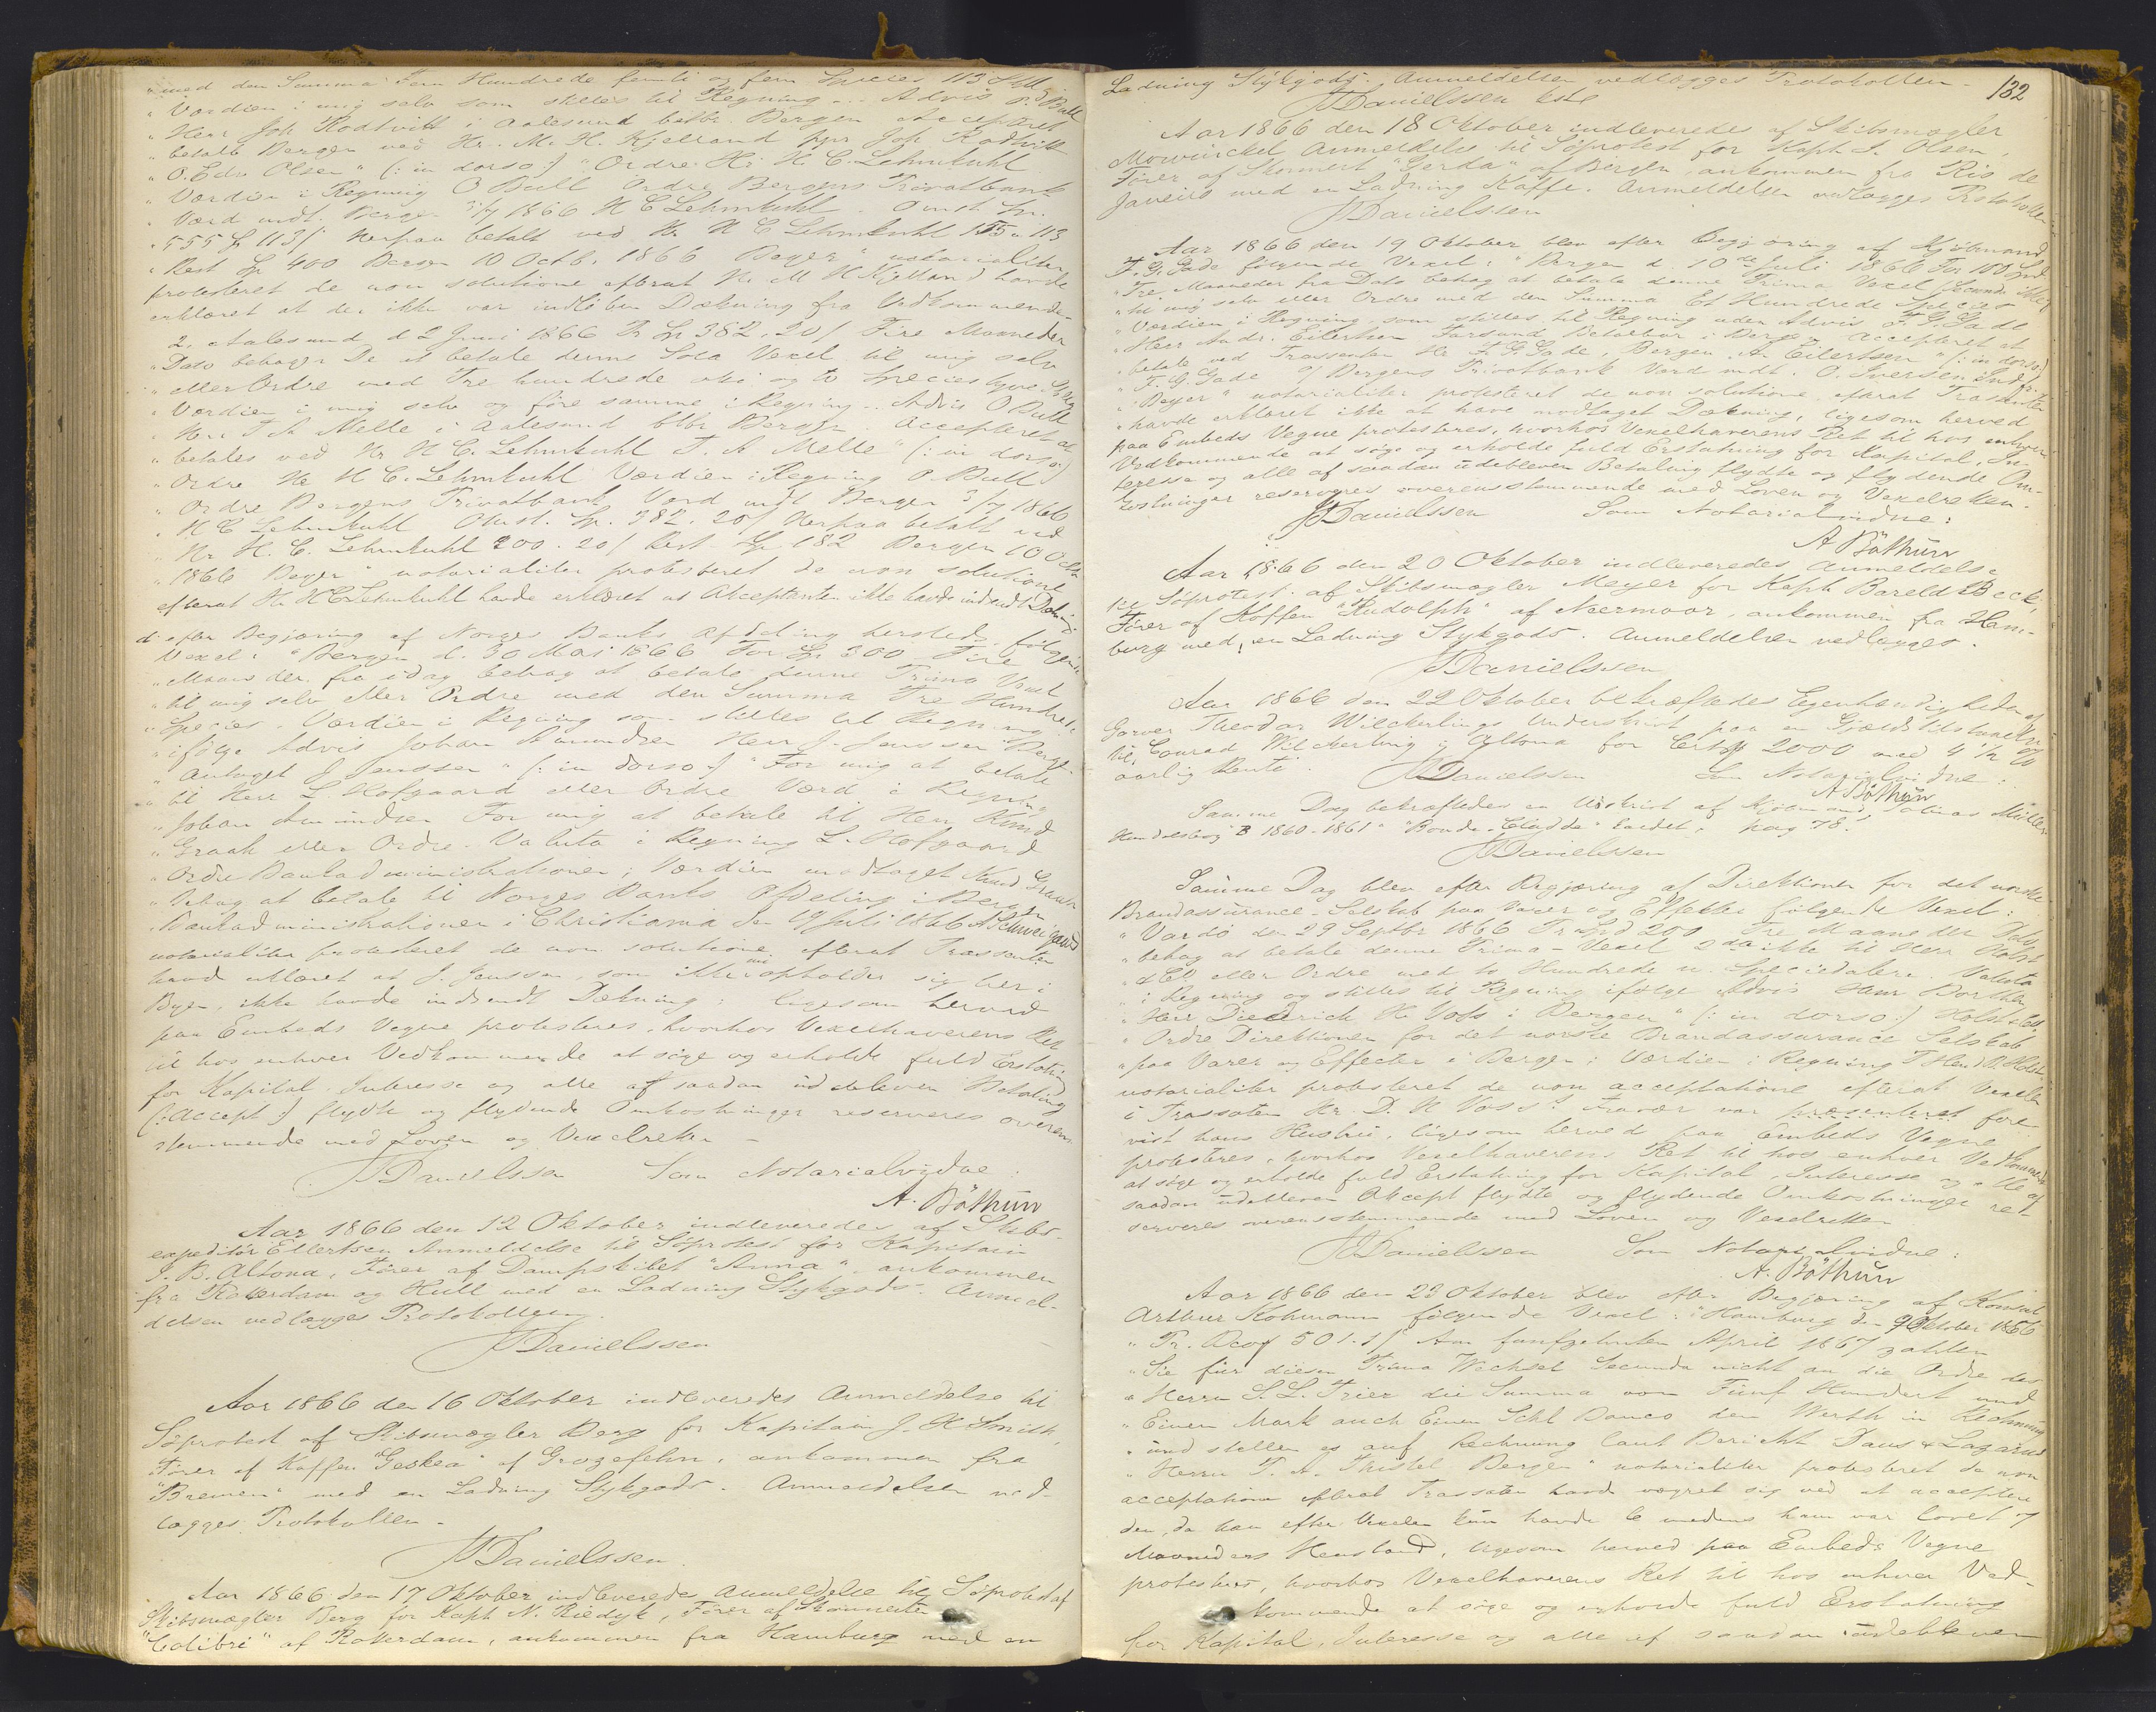 "med den Summa Fem Hundrede femti og fem Species 113 ß
"Værdien i mig selv som stilles til Regning ... Advis O. Bull
"Herr Joh Rodtvitt i Aalesund betbr. Bergen Accepteret
"betalb Bergen ved Hr. M. H. Kjelland ppr Joh Rodtvitt
"O. Edv Olsen" (: in dorso:) "Ordre Hr. H. C. Lehmkuhl
"Værdien i Regning O Bull Ordre Bergens Privatbank
"Værd mdt. Bergen 3/7 1866 H C Lehmkuhl. Omst. Sp.
"555 ß 113/ Herpaa betalt ved Hr H C Lehmkuhl 155 " 113
"Rest Sp 400 Bergen 10 Octb. 1866 Beyer" notarialiter
protesteret de non solutione efterat Hr M H Kjelland havde
erklæret at der ikke var indløben Dækning fra Vedkommende.
2. Aalesund d 2 Juni 1866 Pr Sp 382. 20/ Fire Maaneder
"Dato behager De at betale denne Sola Vexel til mig selv
"eller Ordre med Tre hundrede otti og to Species tyve Sk
"Værdien i mig selv og føre samme i Regning.. Advis O Bull
"Herr T A Melle i Aalesund btbr Bergen Accepteret at
"betales ved Hr H C. Lehmkuhl T. A Melle" (: in dorso:)
"Ordre Hr H C. Lehmkuhl Værdien i Regning O Bull
"Ordre Bergens Privatbank Værd mdt Bergen 3/7 1866
"H C Lehmkuhl Omst. Sp. 382. 20/ Herpaa betalt ved
"Hr H. C. Lehmkuhl 200. 20/ Rest Sp 182 Bergen 10 Octb
"1866 Beyer" notarialiter protesteret de non solutione
efterat Hr H C Lehmkuhl havde erklæret at Acceptanten ikke havde indsendt Dækning
d. efter Begjæring af Norges Banks Afdeling hersteds følgende
Vexel: "Bergen d. 30 Mai 1866 For Sp 300 Fire
"Maaneder fra idag behag at betale denne Prima Vexel
"til mig selv eller Ordre med den Summa Tre Hundrede
"Species. Værdien i Regning som stilles til Regning
"ifølge Advis Johan Amundsen Herr J. Jenssen Bergen
"Antaget J Jenssen" (: in dorso:) "For mig at betale
"til Herr L Hofgaard eller Ordre Værd i Regning
"Johan Amundsen For mig at betale til Herr Knud
"Graah eller Ordre. Valuta i Regning L. Hofgaard
"Ordre Bankadministrationen; Værdien modtaget Knud Graah
"Behag at betale til Norges Banks Afdeling i Bergen
"Bankadministrationen i Christiania den 19 Juli 1866 A Schweigaard
notarialiter protesteret de non solutione efterat Trassenten
havde erklæret at J. Jenssen, som ikke nu opholder sig her i
Byen, ikke havde indsendt Dækning; ligesom herved
paa Embeds Vegne protesteres, hvorhos Vexelhaverens Ret
til hos enhver Vedkommende at søge og erholde fuld Erstatning
for Kapital, Interesse og alle af saadan udebleven Betaling
(: Accept :) flydte og flydende Omkostninger reserveres overens-
stemmende med Loven og Vexelretten –
JDanielssen Som Notarialvidne:
A. Böthun
Aar 1866 den 12 Oktober indleveredes af Skibs-
expeditör Ellertsen Anmeldelse til Söprotest for Kapitain
J. B. Altona, Förer af Dampskibet "Anna", ankommen
fra Rotterdam og Hull med en Ladning Stykgods. Anmel-
delsen vedlægges Protokollen.
JDanielssen
Aar 1866 den 16 Oktober indleveredes Anmeldelse til
Söprotest af Skibsmægler Berg for Kapitain J. H Smith,
Förer af Koffen "Geskea" af Grozefehn, ankommen fra
"Bremen" med en Ladning Stykgods. Anmeldelsen ved-
lægges Protokollen.
JDanielssen.
Aar 1866 den 17 Oktober indleveredes Anmeldelse til Söprotest af
Skibsmægler Berg for Kapt N. Riedyk, Förer af Skonnerten
"Colibri" af Rotterdam, ankommen fra Hamburg med en
132
Ladning Stykgods. Anmeldelsen vedlægges Protokollen –
JDanielssen
Aar 1866 den 18 Oktober indleveredes af Skibsmægler
Mowinckel Anmeldelse til Söprotest for Kapt. J. Olsen,
Förer af Skonnert "Gerda" af Bergen, ankommen fra Rio de
Janeiro med en Ladning Kaffe. Anmeldelsen vedlægges Protokollen
JDanielssen
Aar 1866 den 19 Oktober blev efter Begjæring af Kjöbmand
F. G. Gade følgende Vexel: "Bergen d. 10de Juli 1866 For 100 Spd
"Tre Maaneder fra Dato behag at betale denne Prima Vexel (Secunda ikke)
"til mig selv eller Ordre med den Summa Et Hundrede Species
"Værdien i Regning som stilles til Regning uden Advis F. G. Gade
"Herr Andr. Eilertsen Farsund Betalbar i Bergen Accepteret at
"betale ved Trassenten Hr F G Gade, Bergen A. Eilertsen" (: in dorso:)
"F. G. Gade / Bergens Privatbank Værd mdt. O. Iversen
"Beyer" notarialiter protesteret de non solutione efterat Trassenten
"havde erklæret ikke at have modtaget Dækning, ligesom herved
paa Embeds Vegne protesteres, hvorhos Vexelhaverens Ret til hos enhver
Vedkommende at søge og erholde fuld Erstatning for Kapital, In-
teresse og alle af saadan udebleven Betaling flydte og flydende Om-
kostninger reserveres overensstemmende med Loven og Vexelretten.
JDanielssen Som Notarialvidne:
A Böthun
Aar 1866 den 20 Oktober indleveredes Anmeldelse
til Söprotest af Skibsmægler Meyer for Kapt Bareld Beck,
Förer af Koffen "Rudolph" af Neermoor, ankommen fra Ham-
burg med en Ladning Stykgods. Anmeldelsen vedlægges.
JDanielssen
Aar 1866 den 22 Oktober bekræftedes Egenhændigheden af
Garver Theodor Wilckerlings Underskrift paa en Gjældstilstaaelse
til Conrad Wilckerling i Altona for 2000 med 4 1/2 %
aarlig Rente. JDanielssen Som Notarialvidne:
A Böthun
Samme Dag bekræftedes en Udskrift af Kjöbmand Tobias Möllers
Handelsbog B 1860-1861" "Bonde-Cladde" kaldet, pag 78.
JDanielssen
Samme Dag blev efter Begjæring af Direktionen for det norske
Brandassurance-Selskab paa Varer og Effekter følgende Vexel:
"Vardö den 29 Septbr 1866 Pr Spd 200 Tre Maaneder Dato
"behag at betale denne Prima-Vexel 2da ikke til Herr Holst
"& Co eller Ordre med to Hundrede n. Speciedaler. Valuta
"i Regning og stilles til Regning ifølge Advis
"Herr Diederich H. Voss i Bergen" (: in dorso:) Holst & Co
"Ordre Direktionen for det norske Brandassurance Selskab
"paa Varer og Effecter i Bergen; Værdien i Regning
notarialiter protesteret de non acceptatione efterat Vexelen
i Trassaten Hr. D. H Voss's Fravær var præsenteret fore-
vist hans Hustru, ligesom herved paa Embeds Vegne
protesteres, hvorhos Vexelhaverens Ret til hos enhver Vedkommende
at søge og erholde fuld Erstatning for Kapital, Interesse og alle af
saadan udebleven Accept flydte og flydende Omkostninger re-
serveres overensstemmende med Loven og Vexelretten
JDanielssen Som Notarialvidne:
A. Böthun
Aar 1866 den 23 Oktober blev efter Begjæring af Konsul
Arthur Kohmann følgende Vexel: "Hamburg den 9 Oktober 1866
"Pr. 501. 1/ Am funfzehnten April 1867 zahlen
"Sie für diesen Prima Wechsel Secunda nicht an die Ordre des
"Herrn S. L. Trier die Summa von Fünf Hundert und
"Einen Mark auch Einen Schl Banco den Werth in Rechnung
"und stellen es auf Rechnung laut Bericht Daus & Lazarus
"Herrn T. A. Thistel Bergen" notarialiter protesteret de non
acceptatione efterat Trassaten havde vægret sig ved at acceptere
den, da han efter Vexelen kun havde 6 medens ham var lovet 7
Maaneders Henstand, ligesom herved paa Embeds Vegne
protesteres, hvorhos Vexelhaverens Ret til hos enhver Ved-
kommende at søge og erholde fuld Erstatning
for Kapital, Interesse og alle af saadan udebleven